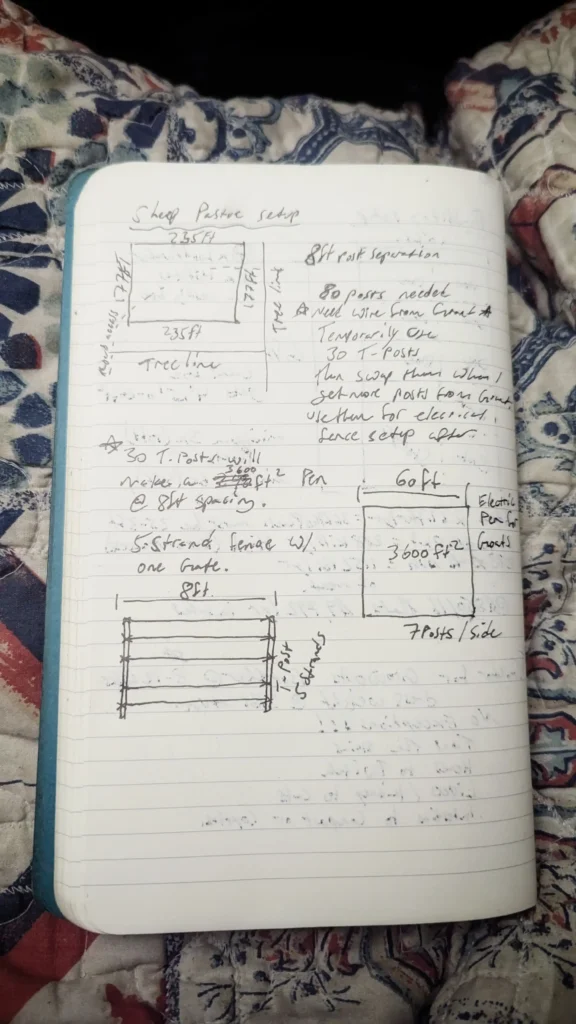 Sheep Pastre setup
235ft
Tree line
235ft
Tree line
8ft post separation
80 posts needed
☆ Need wire from Grant ☆
Temporarily use
30 T-Posts
then swap them when I
get more posts from Grant,
use them for electrical
fence setup after.
☆ 30 T-Posts will
make an 3600 ft² Pen
@ 8ft spacing.
5-Strand, fence w/
one Gate.
8ft
T-Post
5 Strands
60ft
3600 ft²
Electric
Pen for
Goats
7 Posts / side